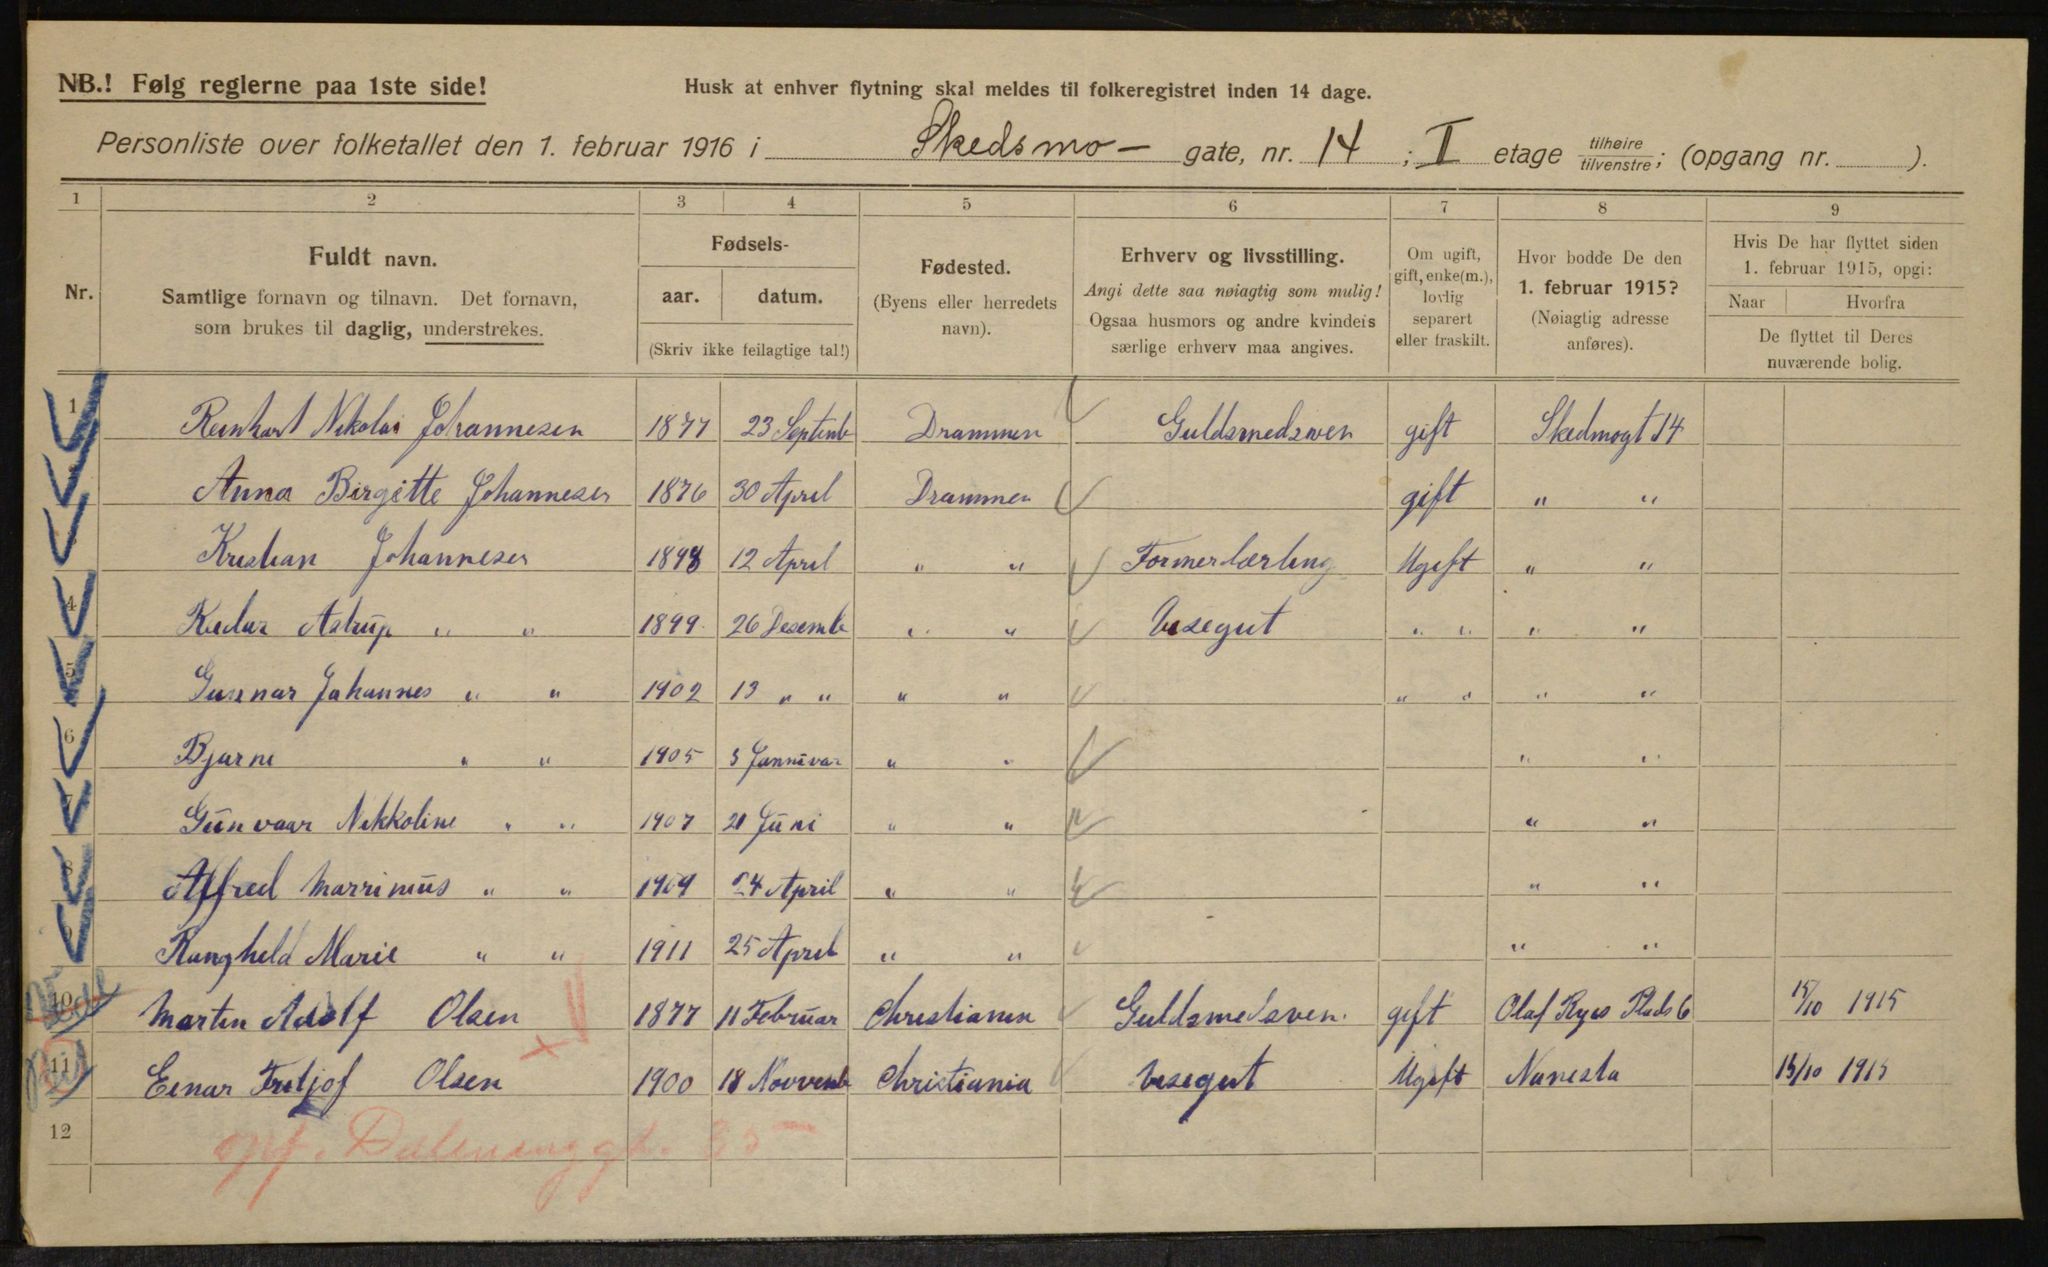 NB.! Følg reglerne paa 1ste side!
Husk at enhver flytning skal meldes til folkeregistret inden 14 dage.
Personliste over folketallet den 1. februar 1916 i Skedsmo- gate, nr. 14 ; I etage tilhøire/tilvenstre; (opgang nr. ).
1 2 3 4 5 6 7 8 9
Nr.
Fuldt navn.
Samtlige fornavn og tilnavn. Det fornavn,
som brukes til daglig, understrekes.
Fødsels-
aar. datum.
(Skriv ikke feilagtige tal!)
Fødested.
(Byens eller herredets
navn).
Erhverv og livsstilling.
Angi dette saa nøiagtig som mulig!
Ogsaa husmors og andre kvinders
særlige erhverv maa angives.
Om ugift,
gift, enke(m.),
lovlig
separert
eller fraskilt.
Hvor bodde De den
1. februar 1915?
(Nøiagtig adresse
anføres).
Hvis De har flyttet siden
1. februar 1915, opgi:
Naar Hvorfra
De flyttet til Deres
nuværende bolig.
1 Reinhart Nikolai Johannesen 1877 23 Septemb Drammen Guldsmedsven gift Skedmogt 14
2 Anna Birgitte Johannesen 1876 30 April Drammen gift " "
3 Kristian Johannesen 1898 12 April " " Formerlærling Ugift " "
4 Astrup " " 1899 26 Desemb " " Visegut " " " "
5 Gunnar Johannes " " 1902 13 " " " " " " " "
6 Bjarne " " 1905 3 Jannivar " " " "
7 Gunvaar Nikkoline " " 1907 21 Juni " " " "
8 Alfred Marrinius " " 1909 24 April " " " "
9 Rangheld Marie " " 1911 25 April " " " "
10 Martin Adolf Olsen 1877 11 Februar Christiania Guldsmedsven. gift Olaf Ryes Plads 6 15/10 1915
11 Einar Fritjof Olsen 1900 18 Novvemb Christiania Visegut Ugift 15/10 1915
12
opf. Dælenenggt. 35